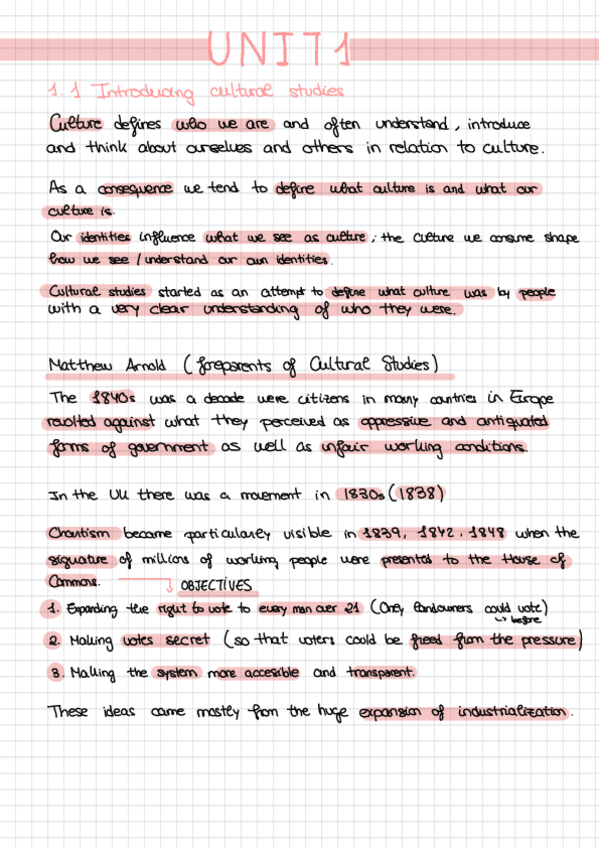 UNIT 1
1.1 Introducing cultural studies
Culture defines who we are and often understand, introduce
and think about ourselves and others in relation to culture.
As a consequence we tend to define what culture is and what our
culture is.
Our identities influence what we see as culture; the culture we consume shape
how we see / understand our own identities.
Cultural studies started as an attempt to define what culture was by people
with a very clear understanding of who they were.
Matthew Arnold (foreparents of Cultural Studies)
The 1840s was a decade were citizens in many countries in Europe
revolted against what they perceived as oppressive and antiquated
forms of government as well as unfair working conditions.
In the UK there was a movement in 1830s (1838)
Chartism became particularly visible in 1839, 1842, 1848 when the
signature of millions of working people were presented to the House of
Commons.
OBJECTIVES
1. Expanding the right to vote to every man over 21 (Only landowners could vote)
↳ before
2. Making votes secret (so that voters could be freed from the pressure)
3. Making the system more accesible and transparent.
These ideas came mostly from the huge expansion of industrialization.